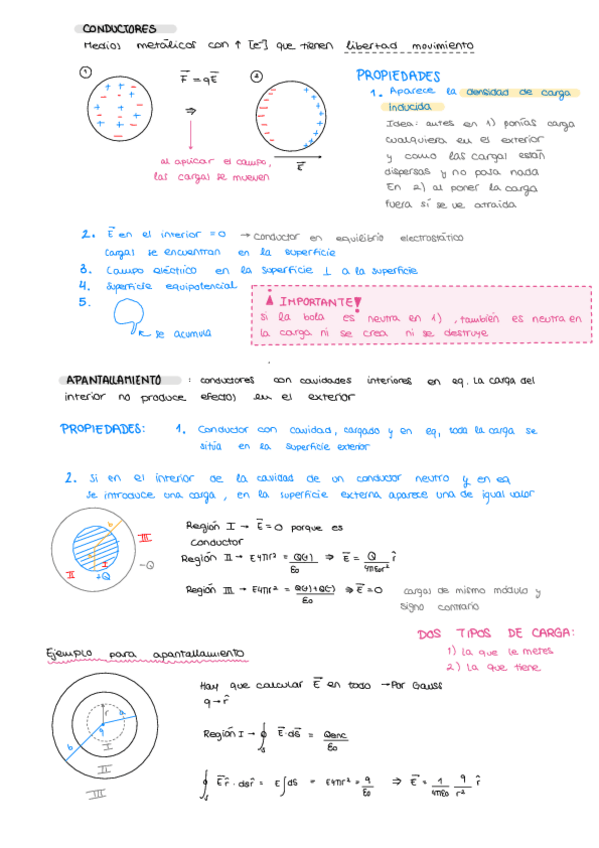 CONDUCTORES
Medios metálicos con ↑ [e⁻] que tienen libertad movimiento
1
F⃗ = qE⃗
2
⇒
E⃗
al aplicar el campo,
las cargas se mueven
PROPIEDADES
1. Aparece la densidad de carga
inducida
Idea: antes en 1) ponías carga
cualquiera en el exterior
y como las cargas están
dispersas y no pasa nada
En 2) al poner la carga
fuera sí se ve atraída
2. E⃗ en el interior = 0 → conductor en equilibrio electrostático
cargas se encuentran en la superficie
3. Campo eléctrico en la superficie ⊥ a la superficie
4. Superficie equipotencial
5.
se acumula
¡IMPORTANTE!
si la bola es neutra en 1), también es neutra en
la carga ni se crea ni se destruye
APANTALLAMIENTO : conductores con cavidades interiores en eq. La carga del
interior no produce efectos en el exterior
PROPIEDADES: 1. Conductor con cavidad, cargado y en eq, toda la carga se
sitúa en la superficie exterior
2. Si en el interior de la cavidad de un conductor neutro y en eq
se introduce una carga, en la superficie externa aparece una de igual valor
b
III
I
II
+Q
-Q
Región I → E⃗ = 0 porque es
conductor
Región II → E4πr² = Q(+)/ε0 ⇒ E⃗ = Q/4πε0r² r̂
Región III → E4πr² = Q(+)+Q(-)/ε0 ⇒ E⃗ = 0
cargas de mismo módulo y
signo contrario
DOS TIPOS DE CARGA:
1) la que le metes
2) La que tiene
Ejemplo para apantallamiento
r
a
q
b
I
II
III
Hay que calcular E⃗ en todo → Por Gauss
q → r̂
Región I → ∮s E⃗ · dS⃗ = Qenc/ε0
∮s E⃗r̂ · dsr̂ = E∫ds = E4πr² = q/ε0 ⇒ E⃗ = 1/4πε0 q/r² r̂